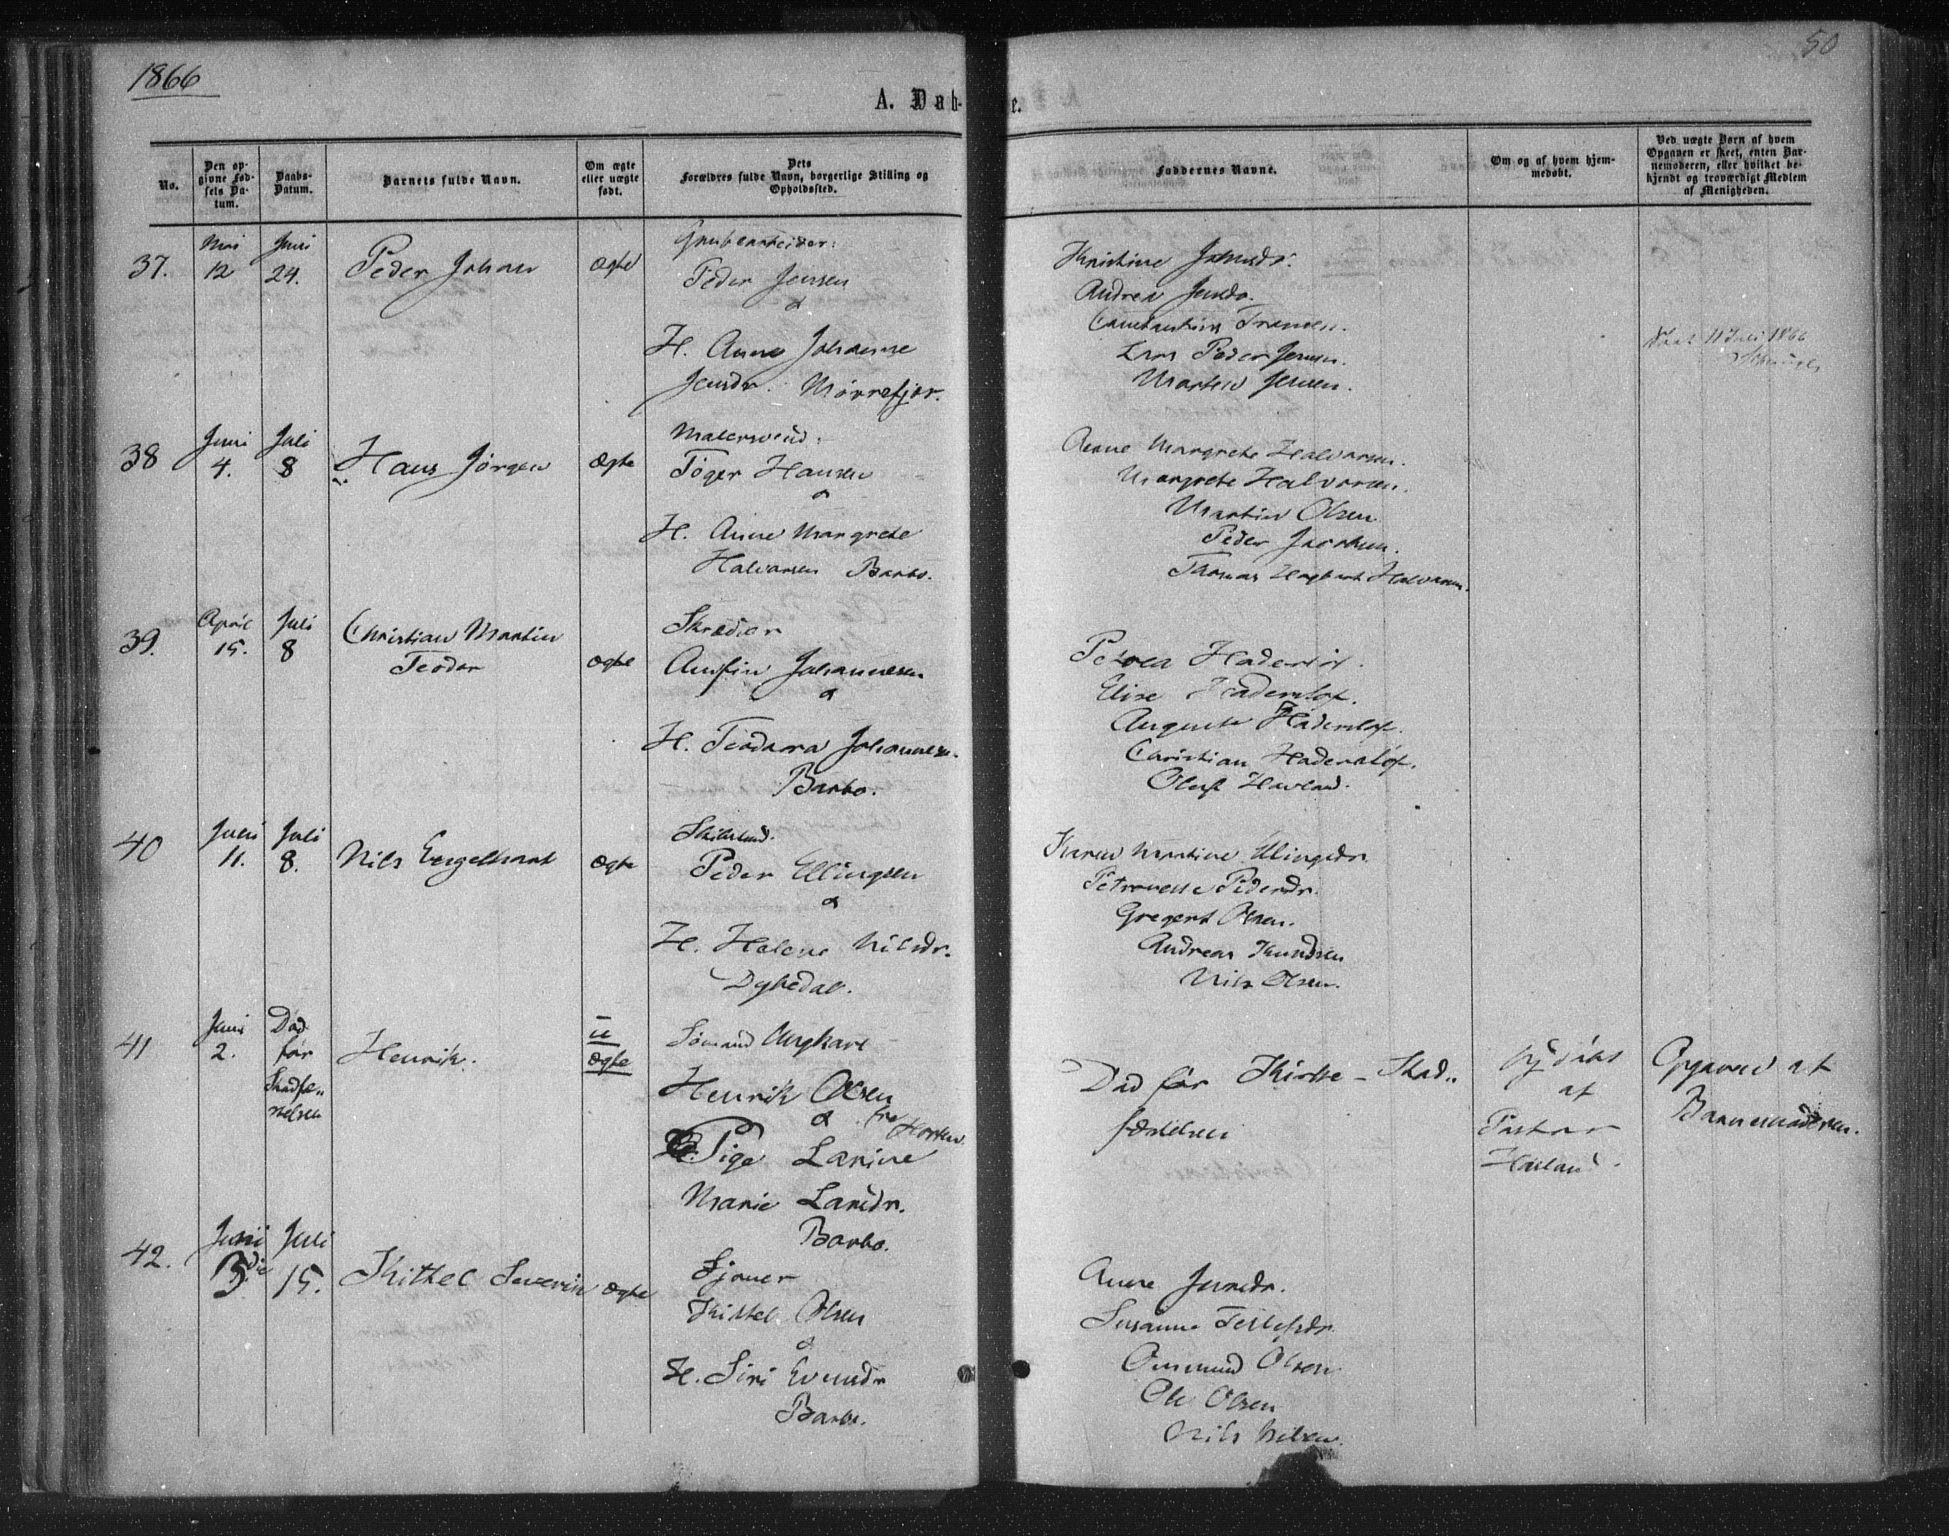 1866
50
A. Daab-
e.
No.
Den op-
givne Fød-
sels Da-
tum.
Daabs-
Datum.
Barnets fulde Navn.
Om ægte
eller uægte
født.
Dets
Forældres fulde Navn, borgerlige Stilling og
Opholdssted.
Faddernes Navne.
Om og af hvem hjem-
medøbt.
Ved uægte Barn af hvem
Opgaven er skeet, enten Bar-
nemoderen, eller hvilket be-
kjendt og troværdigt Medlem
af Menigheden.
37.
Mai
12
Juni
24.
Peder Johan
Ægte
Grubearbeider:
Peder Jensen
&
H. Anne Johanne
Jensdr. Mørrefjær.
Kristine
Andrea Jensdr.
Lars Peder Jensen.
Martin Jensen.
11 Juli 1866
38
Juni
4.
Juli
8
Hans Jørgen
Ægte
Malersvend:
Tøger Hansen
&
H. Anne Margrete
Halvorsen Barbo.
Anne Margrete Halvorsen.
Margrete Halvorsen.
Martin Olsen
Peder Jacobsen.
Thomas Halvorsen.
39.
April
15.
Juli
8
Christian Martin
Teodor
Ægte
Skræder
Johannesen
&
H. Teodora Johannesen.
Barbo.
Petrea Haderslöf.
Elise Haderslöf.
Auguste Haderslöf.
Christian Haderslöf.
Oluf Havland.
40
Juni
11.
Juli
8.
Nils Engelhart
Ægte
Peder Ellingsen
&
H. Helene Nilsdr.
Dybedal.
Karen Martine Elingsdr.
Pedersdr.
Gregert Olsen.
Andreas Knudsen
Nils Olsen.
41
Juni
2.
Død
før
Stadfæ-
stelsen
Henrik.
u
ægte
Sömand Ungkarl
Henrik Olsen
& fra
Pige Larine
Marie Larsdr.
Barbo.
Död før Kirke - Stad"
fæstelsen
Hj. döbt
af
Pastor
Havland.
Opgaven af
Barnemoderen.
42.
Juni
3die
Juli
15.
Kittel Severin
Ægte
Sjouer
Kittel Olsen
&
H. Siri Evensdr
Barbo.
Anne Jensdr.
Susanne Tellefsdr
Omund Olsen
Ole Olsen
Nils Nilsen.